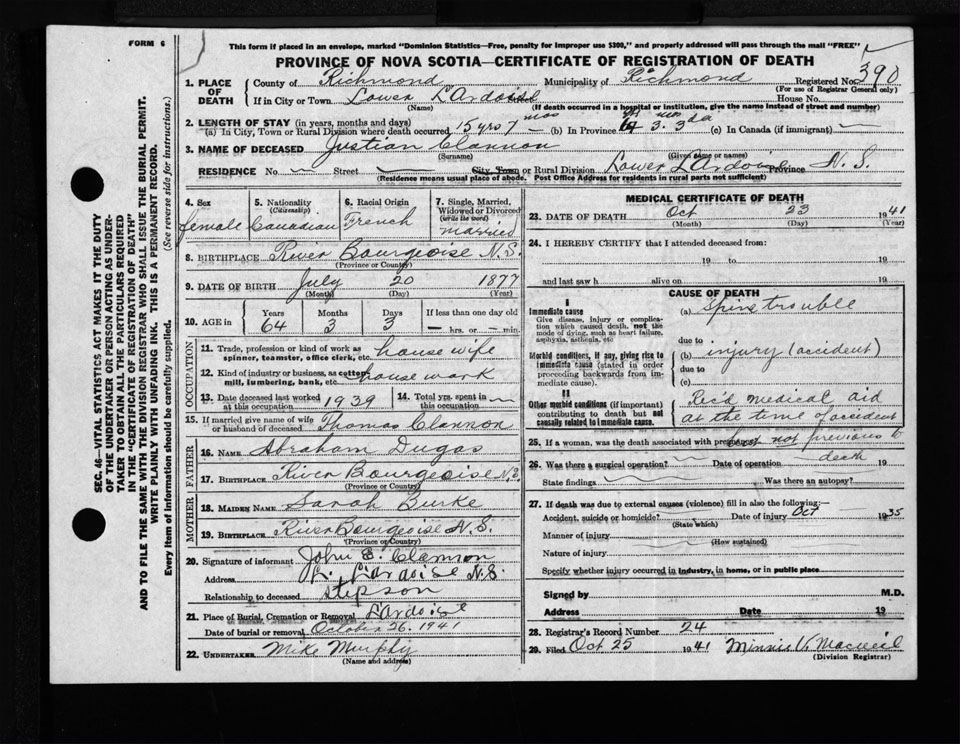 FORM 6
This form if placed in an envelope, marked "Dominion Statistics—Free, penalty for improper use $300," and properly addressed will pass through the mail "FREE"
PROVINCE OF NOVA SCOTIA—CERTIFICATE OF REGISTRATION OF DEATH
SEC. 46—VITAL STATISTICS ACT MAKES IT THE DUTY
OF THE UNDERTAKER OR PERSON ACTING AS UNDER-
TAKER TO OBTAIN ALL THE PARTICULARS REQUIRED
IN THE "CERTIFICATE OF REGISTRATION OF DEATH"
AND TO FILE THE SAME WITH THE DIVISION REGISTRAR WHO SHALL ISSUE THE BURIAL PERMIT.
WRITE PLAINLY WITH UNFADING INK. THIS IS A PERMANENT RECORD.
Every item of information should be carefully supplied. (See reverse side for instructions.)
1. PLACE OF DEATH County of Richmond Municipality of Richmond Registered No. 390
(For use of Registrar General only)
If in City or Town Lower L'Ardoise House No.
(Name) (If death occurred in a hospital or institution, give the name instead of street and number)
2. LENGTH OF STAY (in years, months and days)
(a) In City, Town or Rural Division where death occurred 15 yrs 7 mos — (b) In Province 64 3. 3 da (c) In Canada (if immigrant) —
3. NAME OF DECEASED Justian Clannon
(Surname) (Given name or names)
RESIDENCE No. — Street — City, Town or Rural Division Lower L'Ardoise Province N.S.
(Residence means usual place of abode. Post Office Address for residents in rural parts not sufficient)
4. Sex female
5. Nationality (Citizenship) Canadian
6. Racial Origin French
7. Single, Married, Widowed or Divorced (write the word) married
8. BIRTHPLACE River Bourgeoise N.S.
(Province or Country)
9. DATE OF BIRTH July 20 1877
(Month) (Day) (Year)
10. AGE in Years Months Days If less than one day
64 3 3 — hrs. or — min.
OCCUPATION
11. Trade, profession or kind of work as spinner, teamster, office clerk, etc. house wife
12. Kind of industry or business, as cotton mill, lumbering, bank, etc. house work
13. Date deceased last worked at this occupation 1939
14. Total yrs. spent in this occupation —
15. If married give name of wife or husband of deceased Thomas Clannon
FATHER
16. NAME Abraham Dugas
17. BIRTHPLACE River Bourgeoise N.S.
(Province or Country)
MOTHER
18. MAIDEN NAME Sarah Burke
19. BIRTHPLACE River Bourgeoise N.S.
(Province or Country)
20. Signature of informant John E. Clannon
Address L. L'Ardoise N.S.
Relationship to deceased stepson
21. Place of Burial, Cremation or Removal L'Ardoise
Date of burial or removal October 26. 1941
22. UNDERTAKER Mike Murphy
(Name and address)
MEDICAL CERTIFICATE OF DEATH
23. DATE OF DEATH Oct 23 1941
(Month) (Day) (Year)
24. I HEREBY CERTIFY that I attended deceased from:
19 to 19
and last saw h alive on 19
CAUSE OF DEATH
I
Immediate cause
Give disease, injury, or complication which caused death, not the mode of dying, such as heart failure, asphyxia, asthenia, etc.
(a) Spine trouble
due to
Morbid conditions, if any, giving rise to immediate cause (stated in order proceeding backwards from immediate cause).
(b) injury (accident)
due to
(c)
II
Other morbid conditions (if important) contributing to death but not causally related to immediate cause.
Rec'd medical aid
at the time of accident
but not previous to
death
25. If a woman, was the death associated with pregnancy?
26. Was there a surgical operation? Date of operation 19
State findings Was there an autopsy?
27. If death was due to external causes (violence) fill in also the following:—
Accident, suicide or homicide? Date of injury Oct 1935
(State which)
Manner of injury
(How sustained)
Nature of injury
Specify whether injury occurred in industry, in home, or in public place
Signed by M.D.
Address Date 19
28. Registrar's Record Number 24
29. Filed Oct 25 1941 Minnie V. Macneil
(Division Registrar)